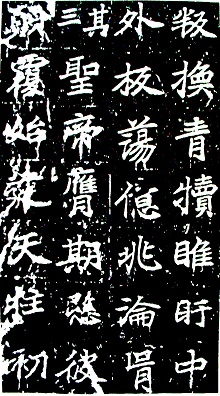 叛換青犢睢盱中
外板蕩億兆淪胥
其三聖帝膺期愍彼
覆始天初